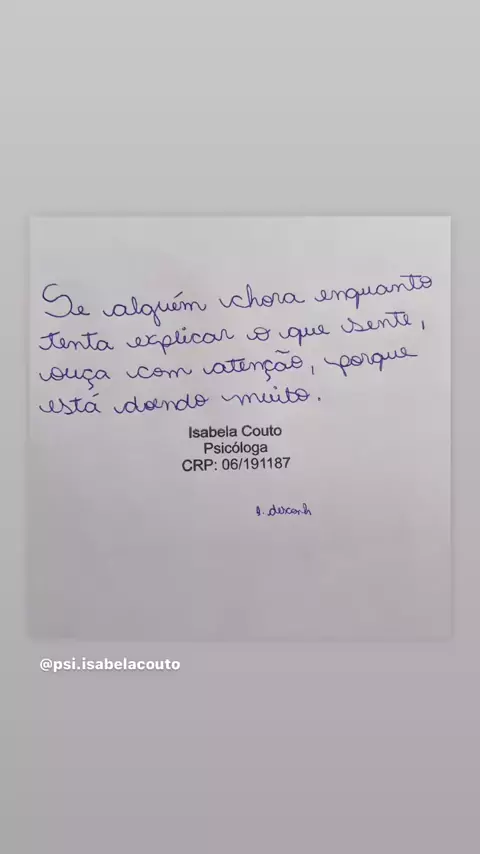 Se alguém chora enquanto
tenta explicar o que sente,
ouça com atenção, porque
está doendo muito.
Isabela Couto
Psicóloga
CRP: 06/191187
@psi.isabelacouto